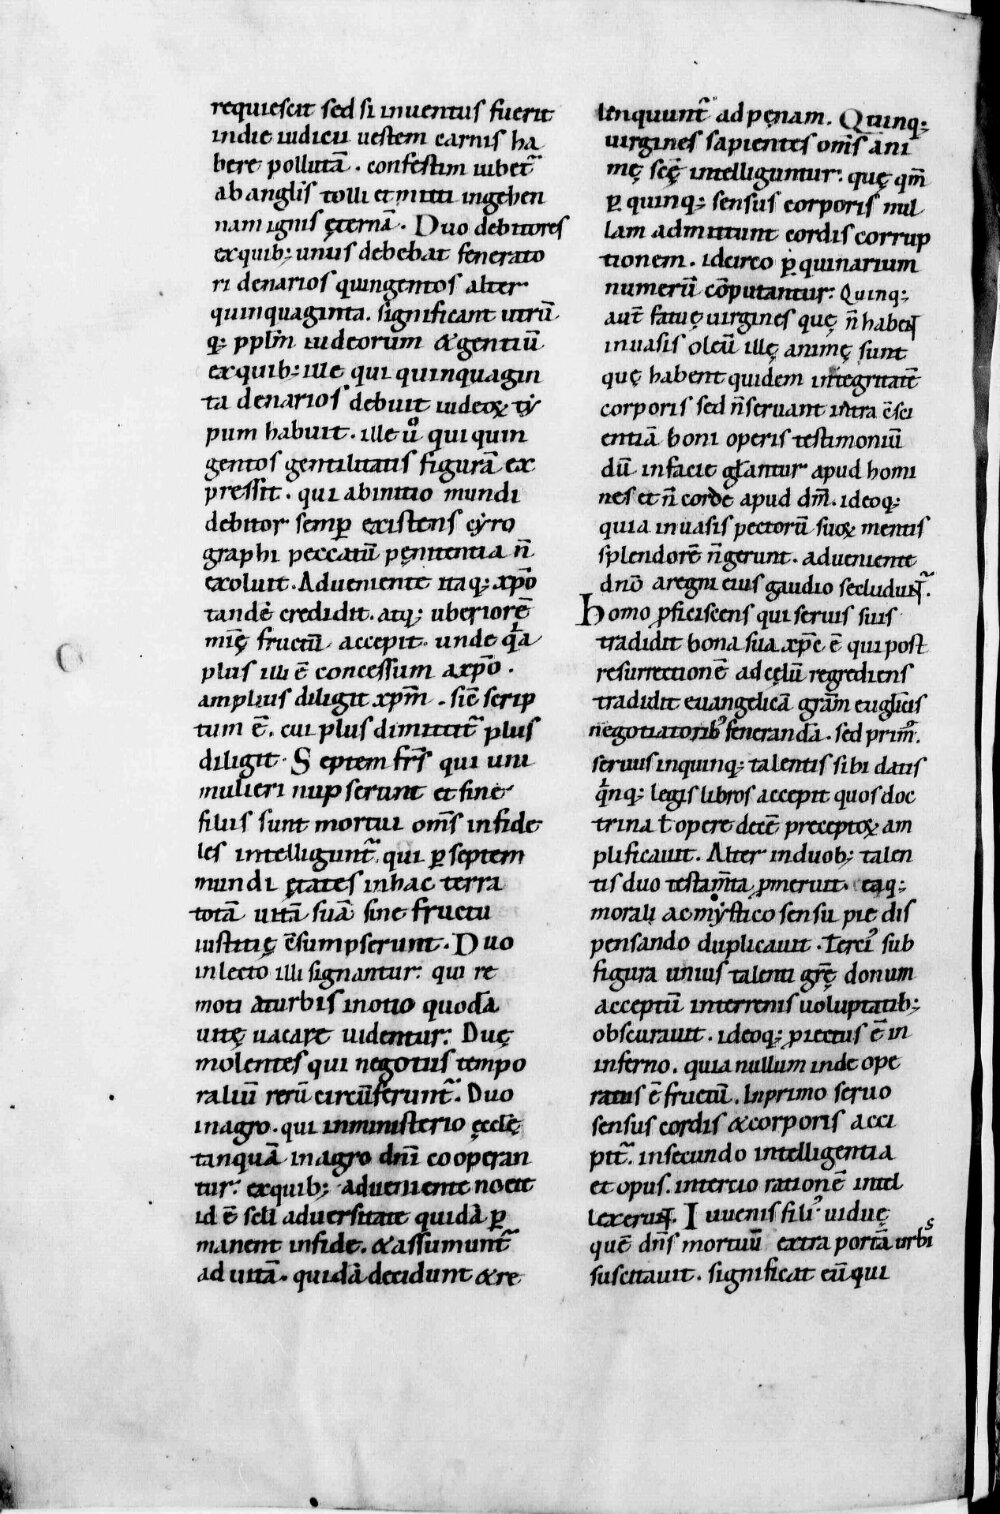 requiescit sed si inventus fuerit
in die iudicii uestem carnis ha
bere pollutā . confestim iubet᷑
ab angl̄is tolli et mitti in gehen
nam ignis ęternā . Duo debitores
ex quib; unius debebat fenerato
ri denarios quingentos alter
quinquaginta . significant utrū
q; pplm̄ iudeorum & gentiū
ex quib; ille qui quinquagin
ta denarios debuit iudeoꝝ ty
pum habuit . ille ů qui quin
gentos gentilitatis figurā ex
pressit . qui ab initio mundi
debitor semꝑ existens cyro
graphi peccatū pęnitentia n̄
exoluit . Adveniente itaq; xp̄o
tandē credidit . atq; uberiorē
mīę fructū accepit . unde q̇a
plus illi ē concessum a xp̄o .
amplius diligit xp̄m . sic̄ scrip
tum ē . cui plus dimittit᷑ plus
diligit . Septem fr̄s qui uni
mulieri nupserunt et sine
filiis sunt mortui om̄s infide
les intelligunt᷑ qui ꝑ septem
mundi ętates in hac terra
totā uitā suā sine fructu
iustitię c̄sumpserunt . Duo
in lecto illi signantur . qui re
moti a turbis in otio quodā
uitę vacare videntur . Duę
molentes qui negotiis tempo
raliū rerū circūferunt᷑ . Duo
in agro . qui in ministerio ęccl̄ę
tanquā in agro dn̄i cooperan
tur . ex quib; adveniente nocte
id ē seĺi adversitate quidā ꝑ
manent in fide . & assumunt᷑
ad vitā . quidā decidunt & re
lenquunt᷑ ad pęnam . Quinq;
virgines sapientes om̄s ani
mę sc̄ę intelliguntur . quę qm̄
ꝑ quinq; sensus corporis nul
lam admittunt cordis corrup
tionem . idcirco ꝑ quinarium
numerū cōputantur . Quinq;
aut̄ fatuę virgines quę n̄ habent
in vasis oleū illę animę sunt
quę habent quidem integritatē
corporis sed n̄ servant intra c̄sci
entiā boni operis testimoniū
dū in facie gl̄antur apud homi
nes et n̄ corde apud dm̄ . ideoq;
quia in vasis pectorū suoꝝ mentis
splendorē n̄ gerunt . adveniente
dn̄o a regni eius gaudio secludunt᷑ .
Homo ꝓficiscens qui servis suis
tradidit bona sua xp̄c ē qui post
resurrectionē ad cęlū regrediens
tradidit evangelicā gram̄ euglicis
negotiatorib; fenerandā . sed prim᷒ .
servus in quinq; talentis sibi datis
q̇nq; legis libros accepit quos doc
trina t̄ opere decē preceptoꝝ am
plificavit . Alter in duob; talen
tis duo testam̄ta ꝓmeruit . eaq;
morali ac mystico sensu pie dis
pensando duplicavit . Terci᷒ sub
figura unius talenti gr̄ę donum
acceptū in terrenis voluptatib;
obscuravit . ideoq; ꝓiectus ē in
inferno . quia nullum inde ope
ratus ē fructū . In primo servo
sensus cordis & corporis acci
pit᷑ . in secundo intelligentia
et opus . in tercio rationē intel
lexerunt . Iuvenis fili᷒ viduę
quē dn̄s mortuū extra portā urbis
suscitavit . significat eū qui